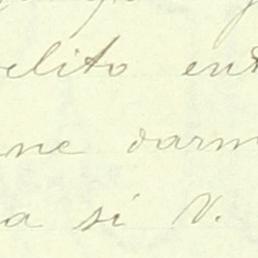 elito ent
ne darm
a si V.